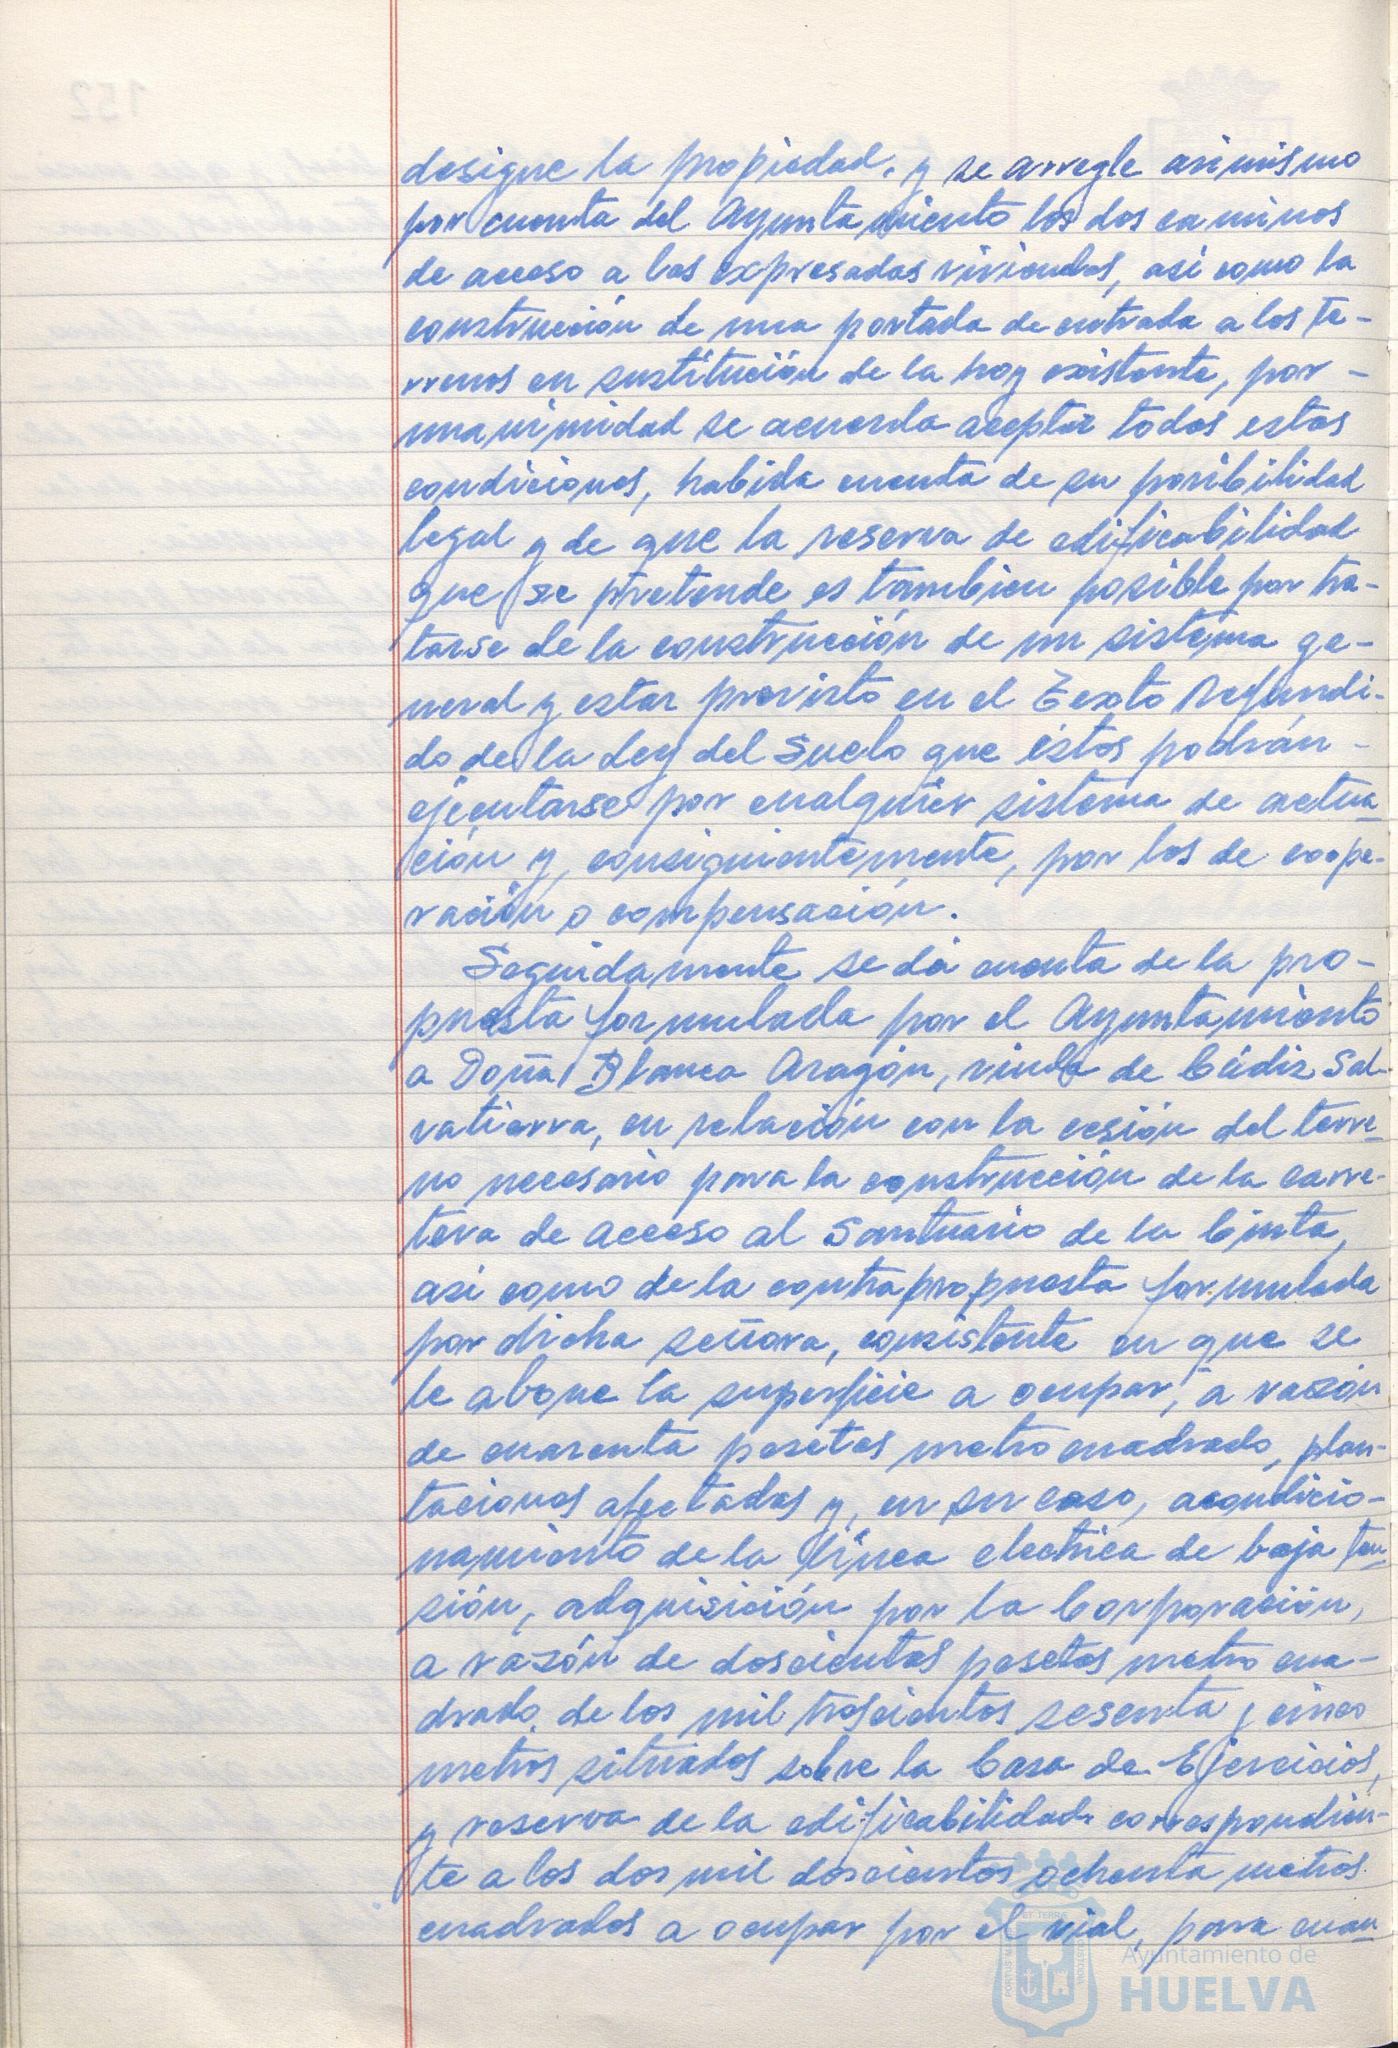 desigue la propiedad, y se arregle asimismo
por cuenta del Ayuntamiento los dos caminos
de acceso a las expresadas viviendas, asi como la
construcción de una portada de entrada a los te-
rrenos en sustitución de la hoy existente, por-
unanimidad se acuerda aceptar todas estas
condiciones, habida cuenta de su posibilidad
legal y de que la reserva de edificabilidad
que se pretende es tambien posible por tra-
tarse de la construcción de un sistema ge-
neral y estar previsto en el Texto Refundi-
do de la Ley del Suelo que éstos podrán-
ejecutarse por cualquier sistema de actua
ción y, consiguientemente, por los de coope-
ración o compensación.
Seguidamente se dá cuenta de la pro-
puesta formulada por el Ayuntamiento
a Doña Blanca Aragón, viuda de Cádiz Sal-
vatierra, en relación con la cesión del terre-
no necesario para la construcción de la carre-
tera de acceso al Santuario de la Cinta,
asi como de la contrapropuesta formulada
por dicha señora, consistente en que se
le abone la superficie a ocupar, a razón
de cuarenta pesetas metro cuadrado, plan-
taciones afectadas y, en su caso, acondicio-
namiento de la línea electrica de baja ten
sión, adquisición por la Corporación,
a razón de doscientas pesetas metro cua-
drado, de los mil trescientos sesenta y cinco
metros situados sobre la Casa de Ejercicios,
y reserva de la edificabilidad correspondien-
te a los dos mil doscientos ochenta metros
cuadrados a ocupar por el vial, para cuan
Ayuntamiento de
HUELVA
152